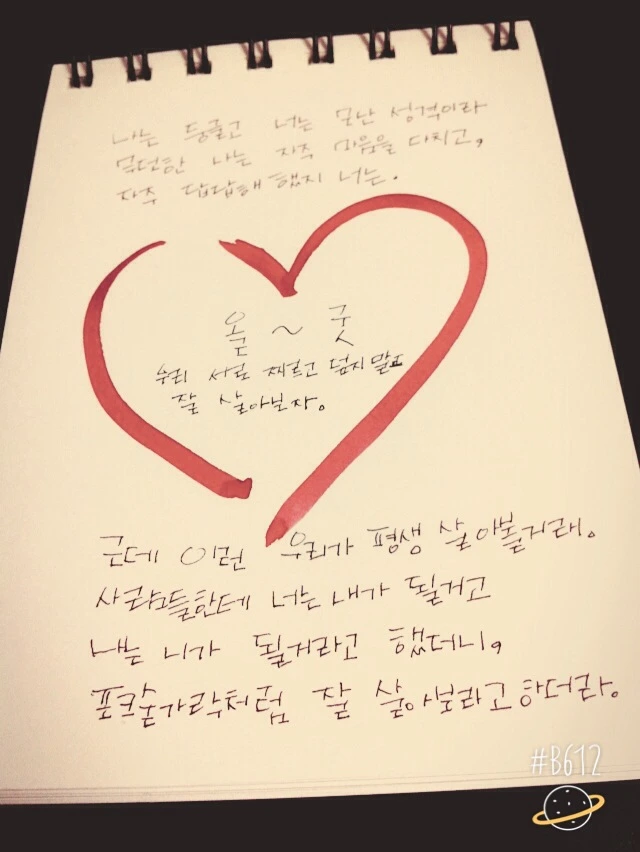 나는 둥글고 너는 모난 성격이라
무던한 나는 자주 마음을 다치고,
자주 답답해 했지 너는.
옳 ~ 굿
우리 서로 찌르고 덮지 말고
잘 살아보자.
근데 이런 우리가 평생 살아볼거래.
사람들한테 너는 내가 될거고
나는 니가 될거라고 했더니,
포크숟가락처럼 잘 살아보라고 하더라.
#B612